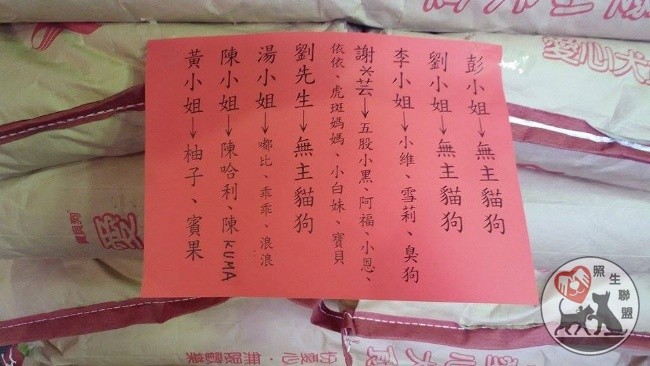 彭小姐→無主貓狗
劉小姐→無主貓狗
李小姐→小維、雪莉、臭狗
謝※芸→五股小黑、阿福、小恩、
依依、虎斑媽媽、小白妹、寶貝
劉先生→無主貓狗
湯小姐→嘟比、乖乖、浪浪
陳小姐→陳哈利、陳KUMA
黃小姐→柚子、賓果
愛心犬
愛
照生聯盟